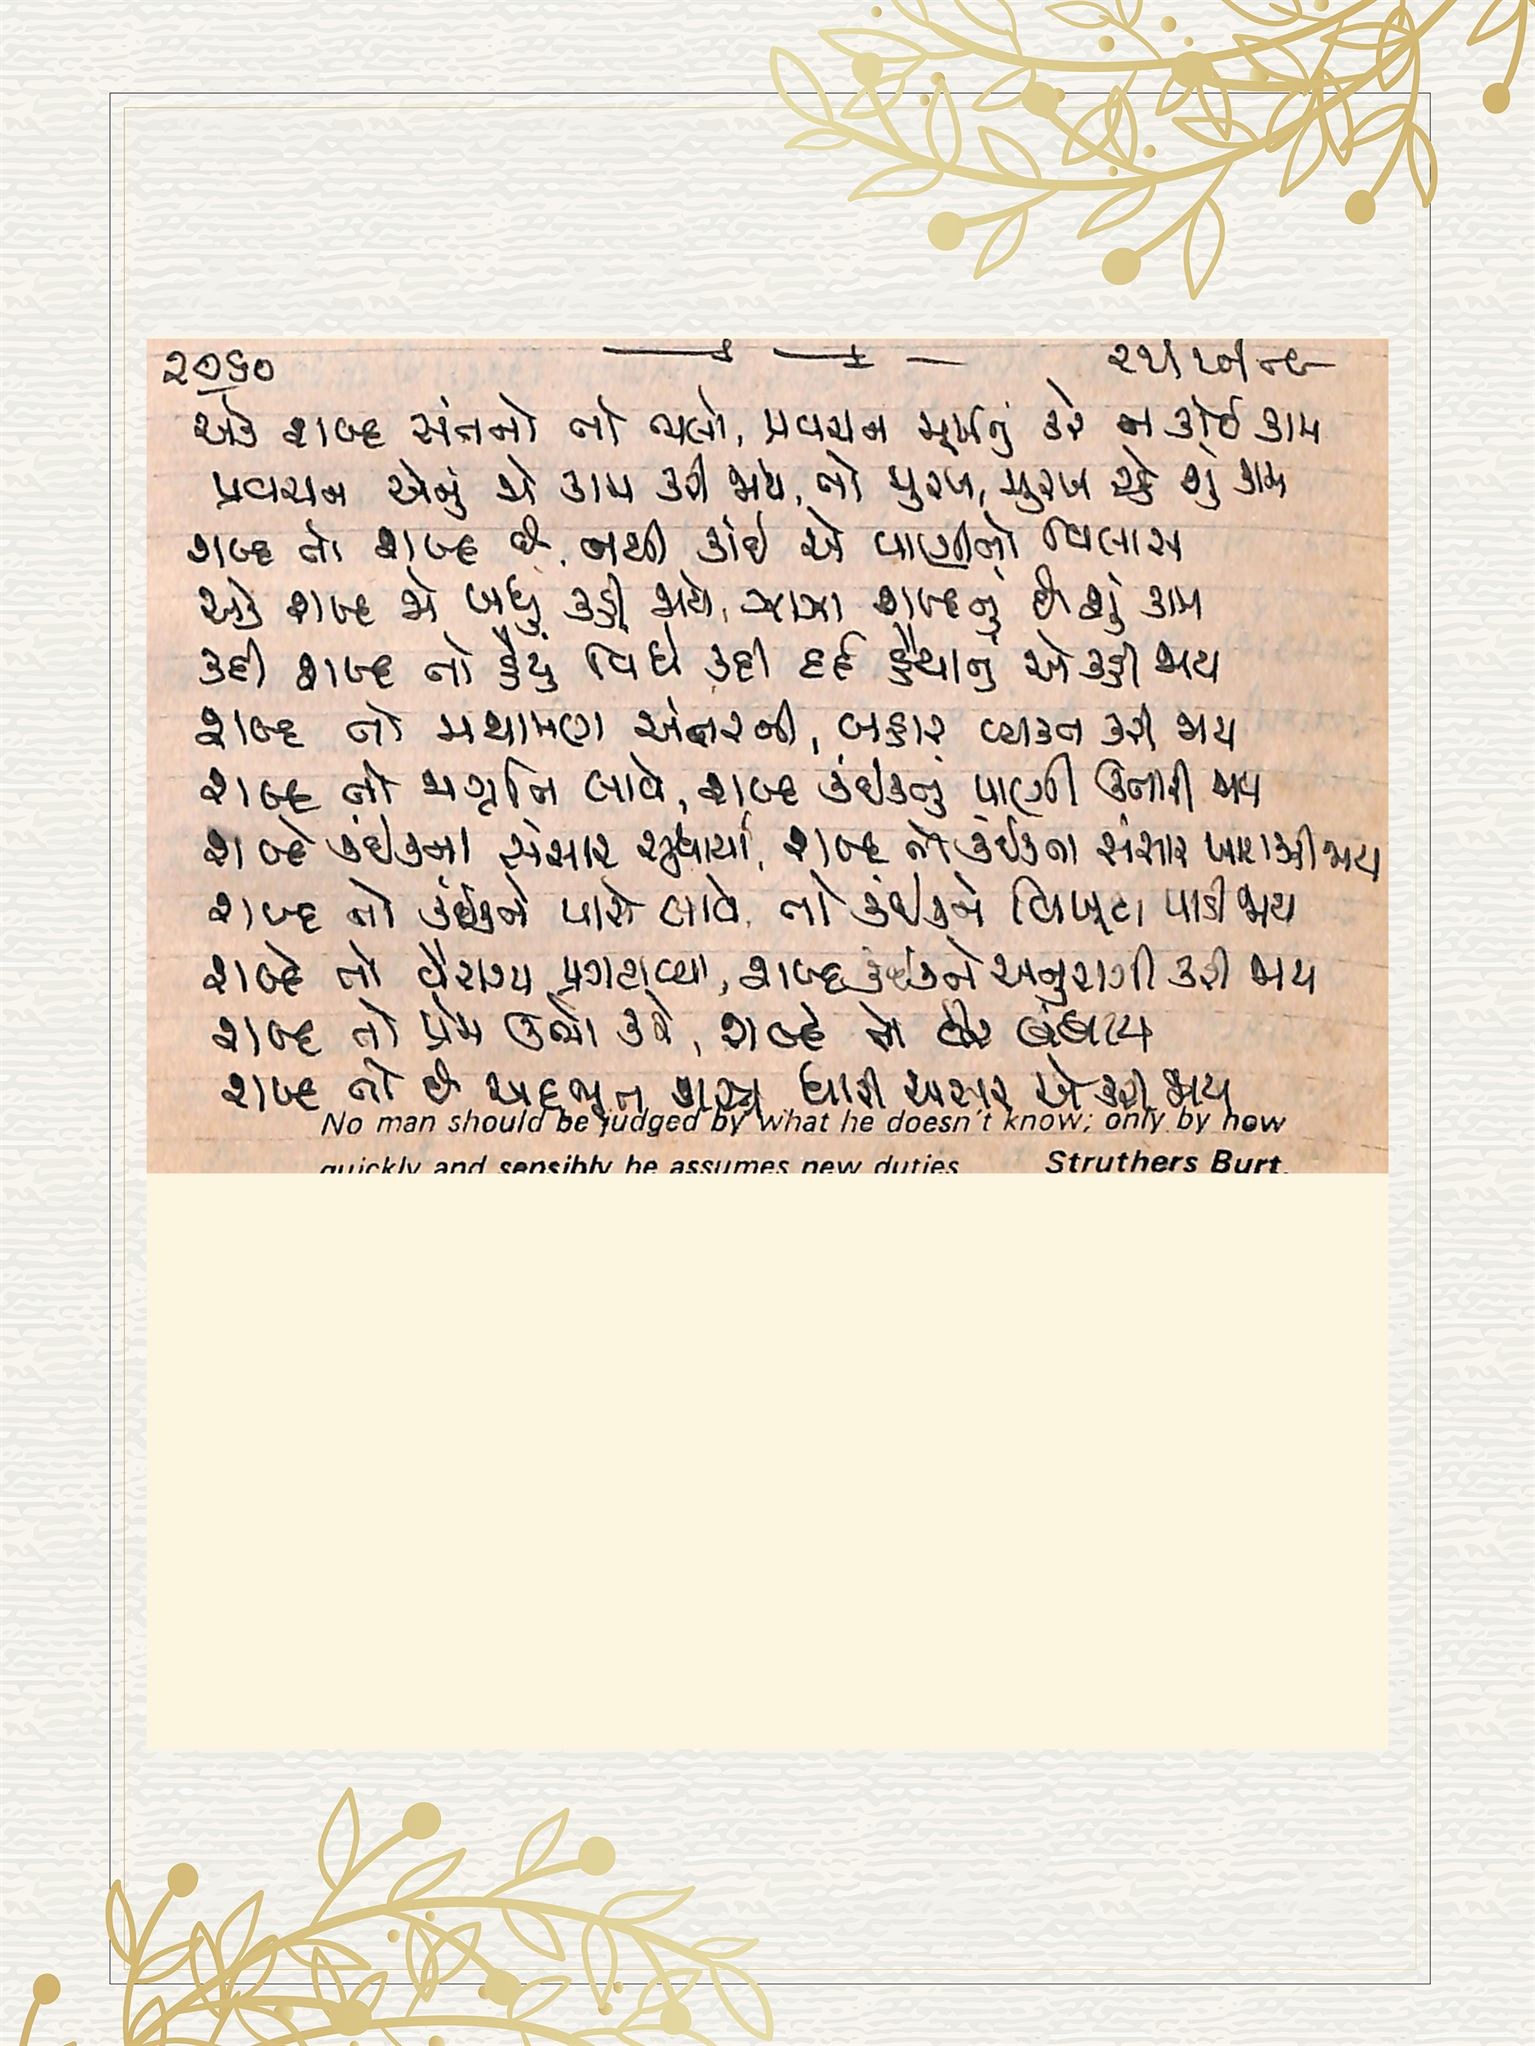 ૨૦૬૦
એક શબ્દ સંતનો તો ભલો, પ્રવચન મૂર્ખનું કરે ન કોઈ કામ
પ્રવચન એનું જો કામ કરી જાય, તો મુરખ, મુરખ રહે શું કામ
શબ્દ તો શબ્દ છે, નથી કાંઈ એ વાણીનો વિલાસ
એક શબ્દ જો બધું કહી જાયે, ઝાઝા શબ્દનું છે શું કામ
કહી શબ્દ તો હૈયું વિંધે કહી દર્દ હૈયાનું એ કહી જાય
શબ્દ તો મથામણ અંતરની, બહાર વ્યક્ત કરી જાય
શબ્દ તો જાગૃતિ લાવે, શબ્દ કંઈકનું પાણી ઉતારી જાય
શબ્દે કંઈકના સંસાર સુધાર્યા, શબ્દ તો કંઈકના સંસાર ખારા કરી જાય
શબ્દ તો કંઈકને પાસે લાવે, તો કંઈકને વિખૂટા પાડી જાય
શબ્દે તો વૈરાગ્ય પ્રગટાવ્યા, શબ્દ કંઈકને અનુરાગી કરી જાય
શબ્દ તો પ્રેમ ઉભો કરે, શબ્દે તો વૈર બંધાય
શબ્દ તો છે અદભૂત શસ્ત્ર ધારી અસર એ કરી જાય
No man should be judged by what he doesn't know; only by how
quickly and sensibly he assumes new duties Struthers Burt.